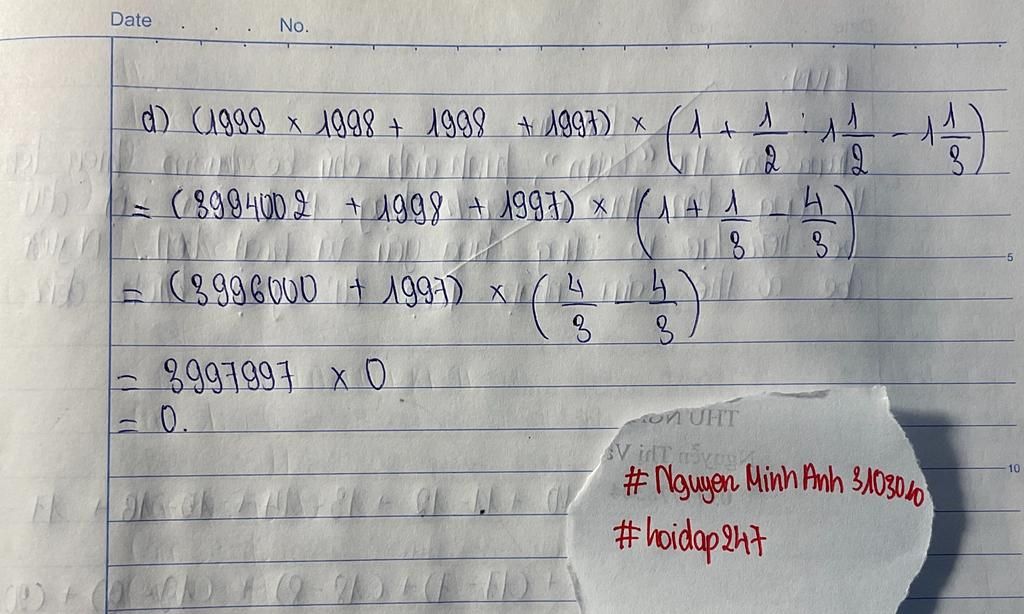 Date . . . . No.
d) (1999 × 1998 + 1998 + 1997) × (1 + 1/2 : 1 1/2 - 1 1/3)
= (3994002 + 1998 + 1997) × (1 + 1/3 - 4/3)
= (3996000 + 1997) × (4/3 - 4/3)
5
= 3997997 × 0
= 0.
10
# Nguyen Minh Anh 3103010
# hoidap247